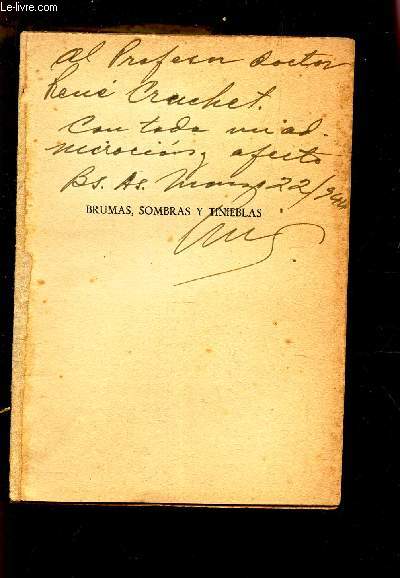 Le-livre.com
Al Profesor doctor
René Cruchet.
Con toda mi ad-
miración y afecto
Bs. As. Marzo 22/
BRUMAS, SOMBRAS Y TINIEBLAS